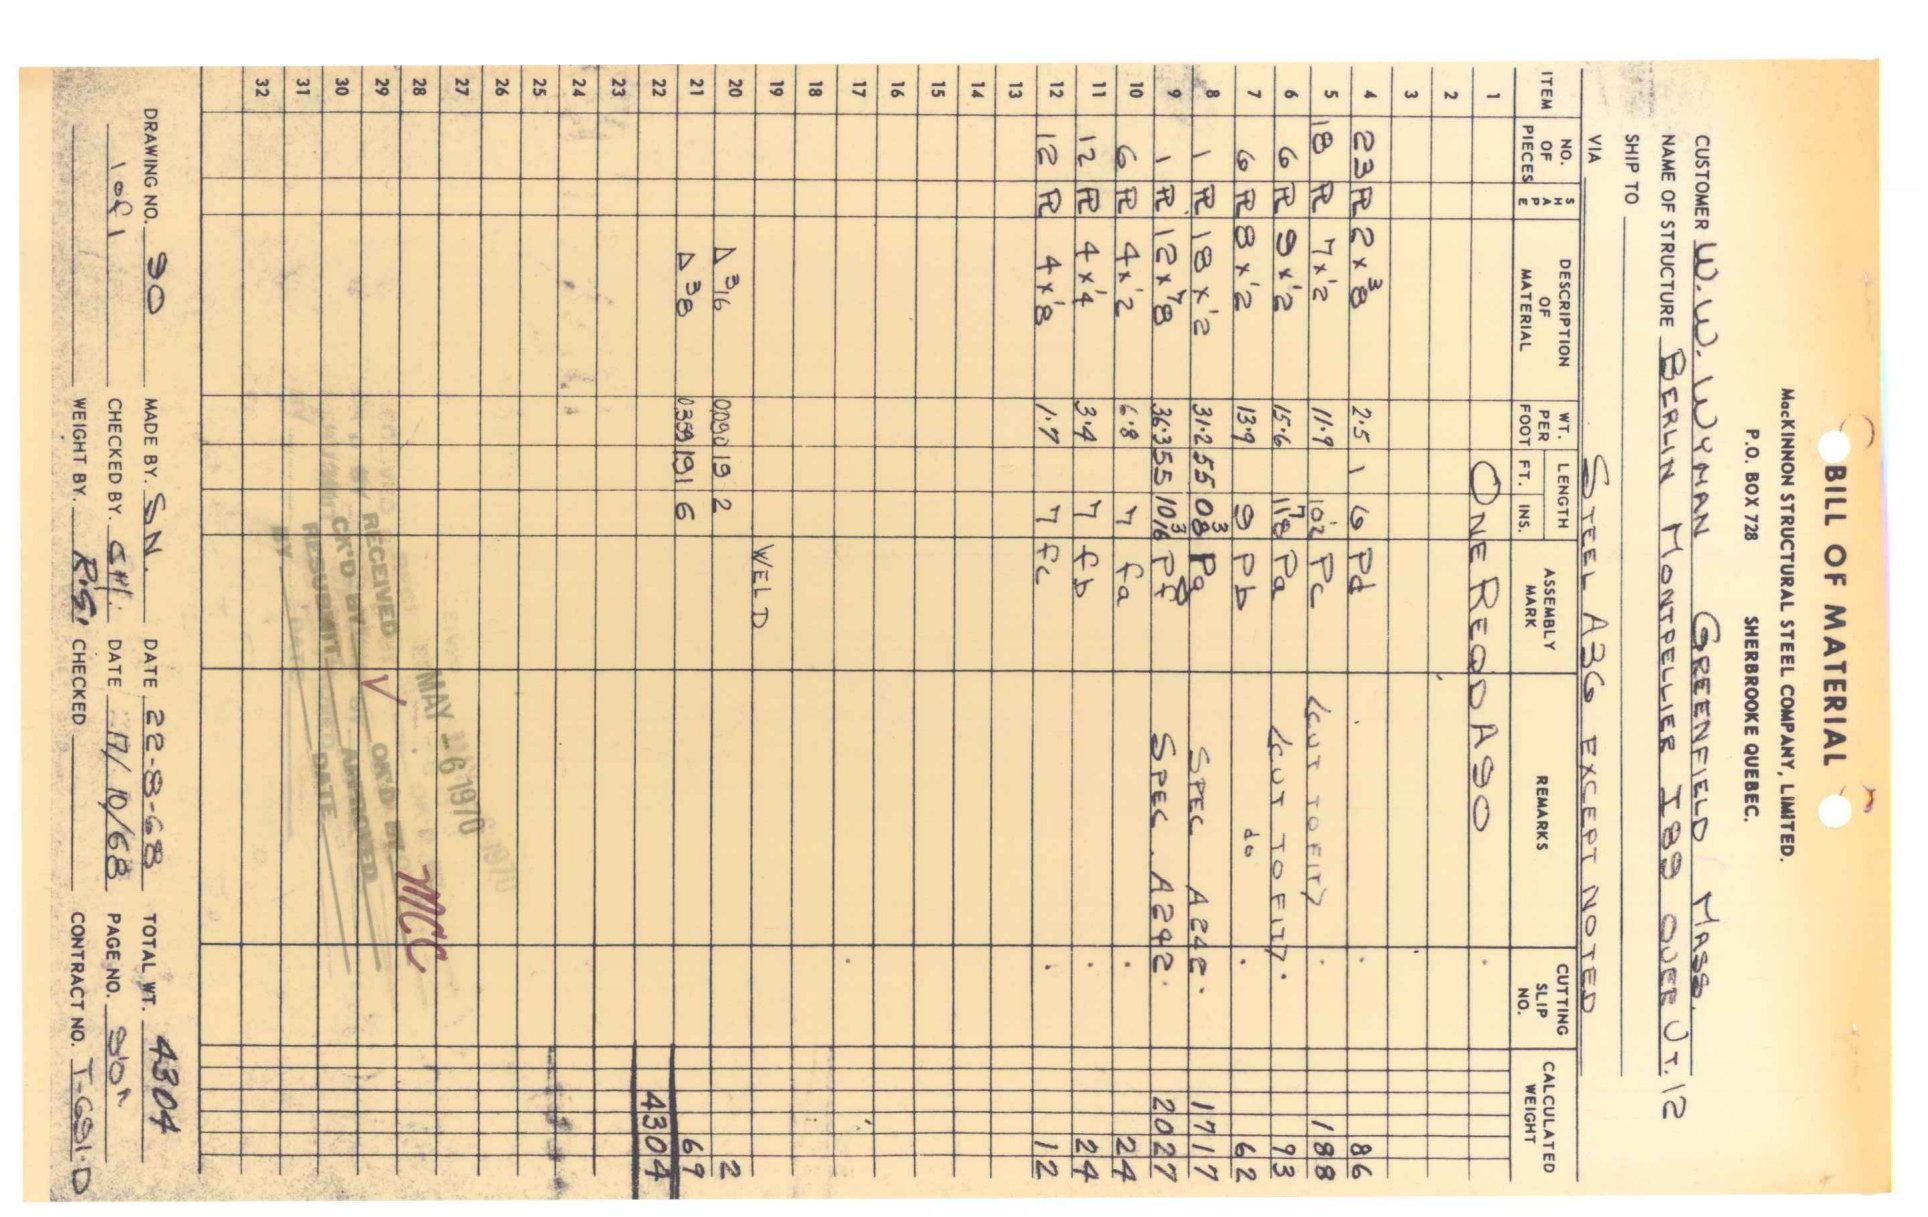 BILL OF MATERIAL
MacKINNON STRUCTURAL STEEL COMPANY, LIMITED.
P.O. BOX 728 SHERBROOKE QUEBEC.
CUSTOMER W. W. WYMAN GREENFIELD MASS.
NAME OF STRUCTURE BERLIN MONTPELLIER I89 OVER VT. 12
SHIP TO
VIA STEEL A36 EXCEPT NOTED
ITEM NO. OF PIECES SHAPE DESCRIPTION OF MATERIAL WT. PER FOOT LENGTH FT. INS. ASSEMBLY MARK REMARKS CUTTING SLIP NO. CALCULATED WEIGHT
1 ONE REQD A90
2
3
4 23 PL 2 x 3/8 2.5 1 6 Pd 86
5 18 PL 7 x 1/2 11.9 10 1/2 Pc <CUT TO FIT> 188
6 6 PL 9 x 1/2 15.6 11 7/8 Pa <CUT TO FIT>. 93
7 6 PL 8 x 1/2 13.9 9 Pb do 62
8 1 PL 18 x 1/2 31.2 55 0 3/8 Pg SPEC A242. 1717
9 1 PL 12 x 7/8 36.3 55 10 3/16 Pf SPEC. A242. 2027
10 6 PL 4 x 1/2 6.8 7 fa 24
11 12 PL 4 x 1/4 3.4 7 fb 24
12 12 PL 4 x 1/8 1.7 7 fc 12
13
14
15
16
17
18
19 WELD
20 △ 3/16 0.090 19 2 2
21 △ 3/8 0.359 191 6 69
22 4304
23
24
25
26
27
28
29
30
31
32
MAY 26 1970
RECEIVED
CK'D BY
OK'D BY
RESUBMIT
APPROVED
BY
DATE
MCC
DRAWING NO. 90 MADE BY. S.N. DATE 22-8-68 TOTAL WT. 4304
1 of 1 CHECKED BY. DATE 17/10/68 PAGE NO.
WEIGHT BY. R.G. CHECKED CONTRACT NO. T-691-D